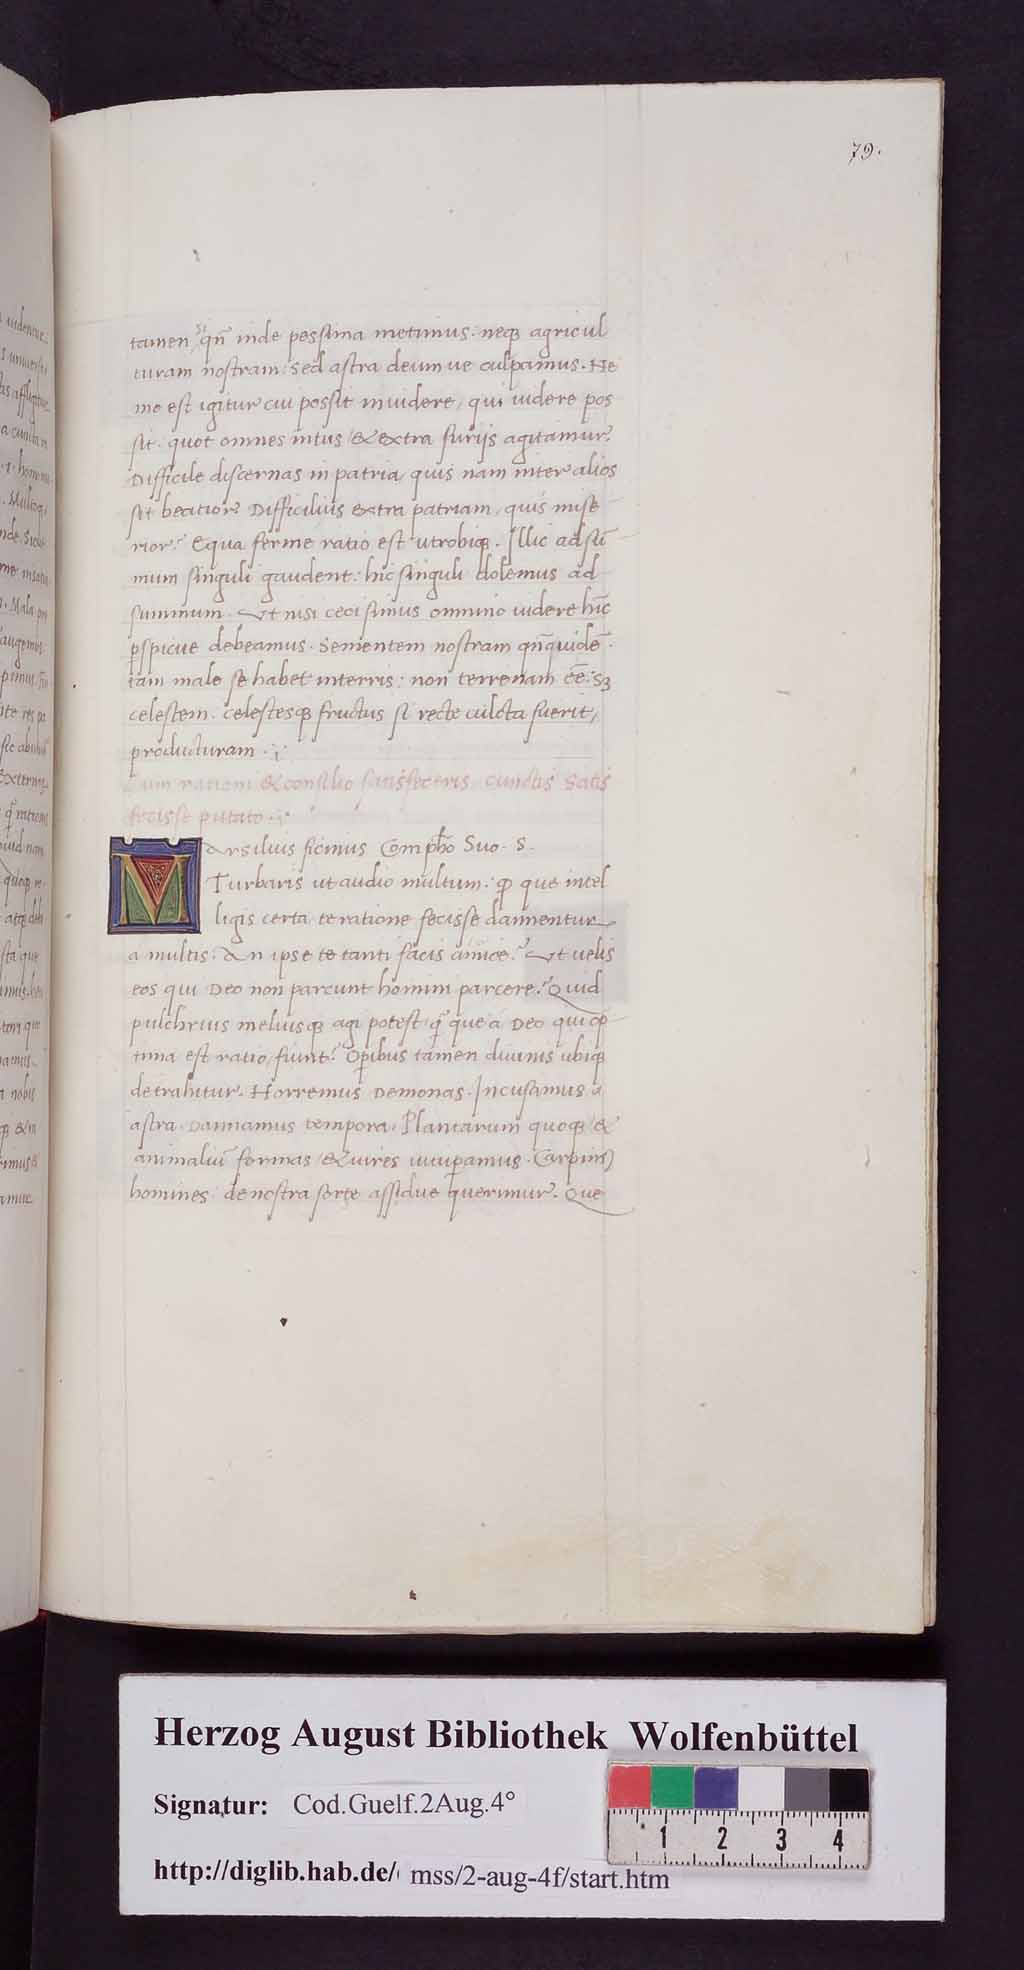 79.
tamen si qn̄ inde pessima metimus: neqȝ agricul
turam nostram: sed astra deum ve culpamus. Ne
mo est igitur cui possit invidere, qui videre pos
sit. quot omnes intus & extra furijs agitamur?
Difficile discernas in patria, quis nam inter alios
sit beatior. Difficilius extra patriam, quis mise
rior? Equa ferme ratio est utrobiqȝ. Illic ad sū
mum singuli gaudent: hic singuli dolemus ad
summum. Ut nisi ceci simus omnino videre hīc
ꝑspicue debeamus. Sementem nostram qn̄quidē
tam male se habet in terris: non terrenam eē: sȝ
celestem. celestesqȝ fructus si recte culcta fuerit,
producturam.
Cum rationi & consilio satisfeceris, cunctis satis
fecisse putato.
Marsilius ficinus Comphō Suo. S.
Turbaris ut audio multum: ꝙ que intel
ligis certa te ratione fecisse damnentur
a multis. An ipse te tanti facis amice? Ut velis
eos qui Deo non parcunt homini parcere? Quid
pulchrius meliusqȝ agi potest q̄ que a Deo qui op
tima est ratio, fiunt? Oꝑibus tamen divinis ubiqȝ
detrahitur. Horremus Demonas. Incusamus
astra. Damnamus tempora. Plantarum quoqȝ &
animaliū formas & vires vituꝑamus. Carpim9
homines: de nostra sorte assidue querimur. Que
Herzog August Bibliothek Wolfenbüttel
Signatur: Cod.Guelf.2Aug.4°
http://diglib.hab.de/ mss/2-aug-4f/start.htm
1 2 3 4